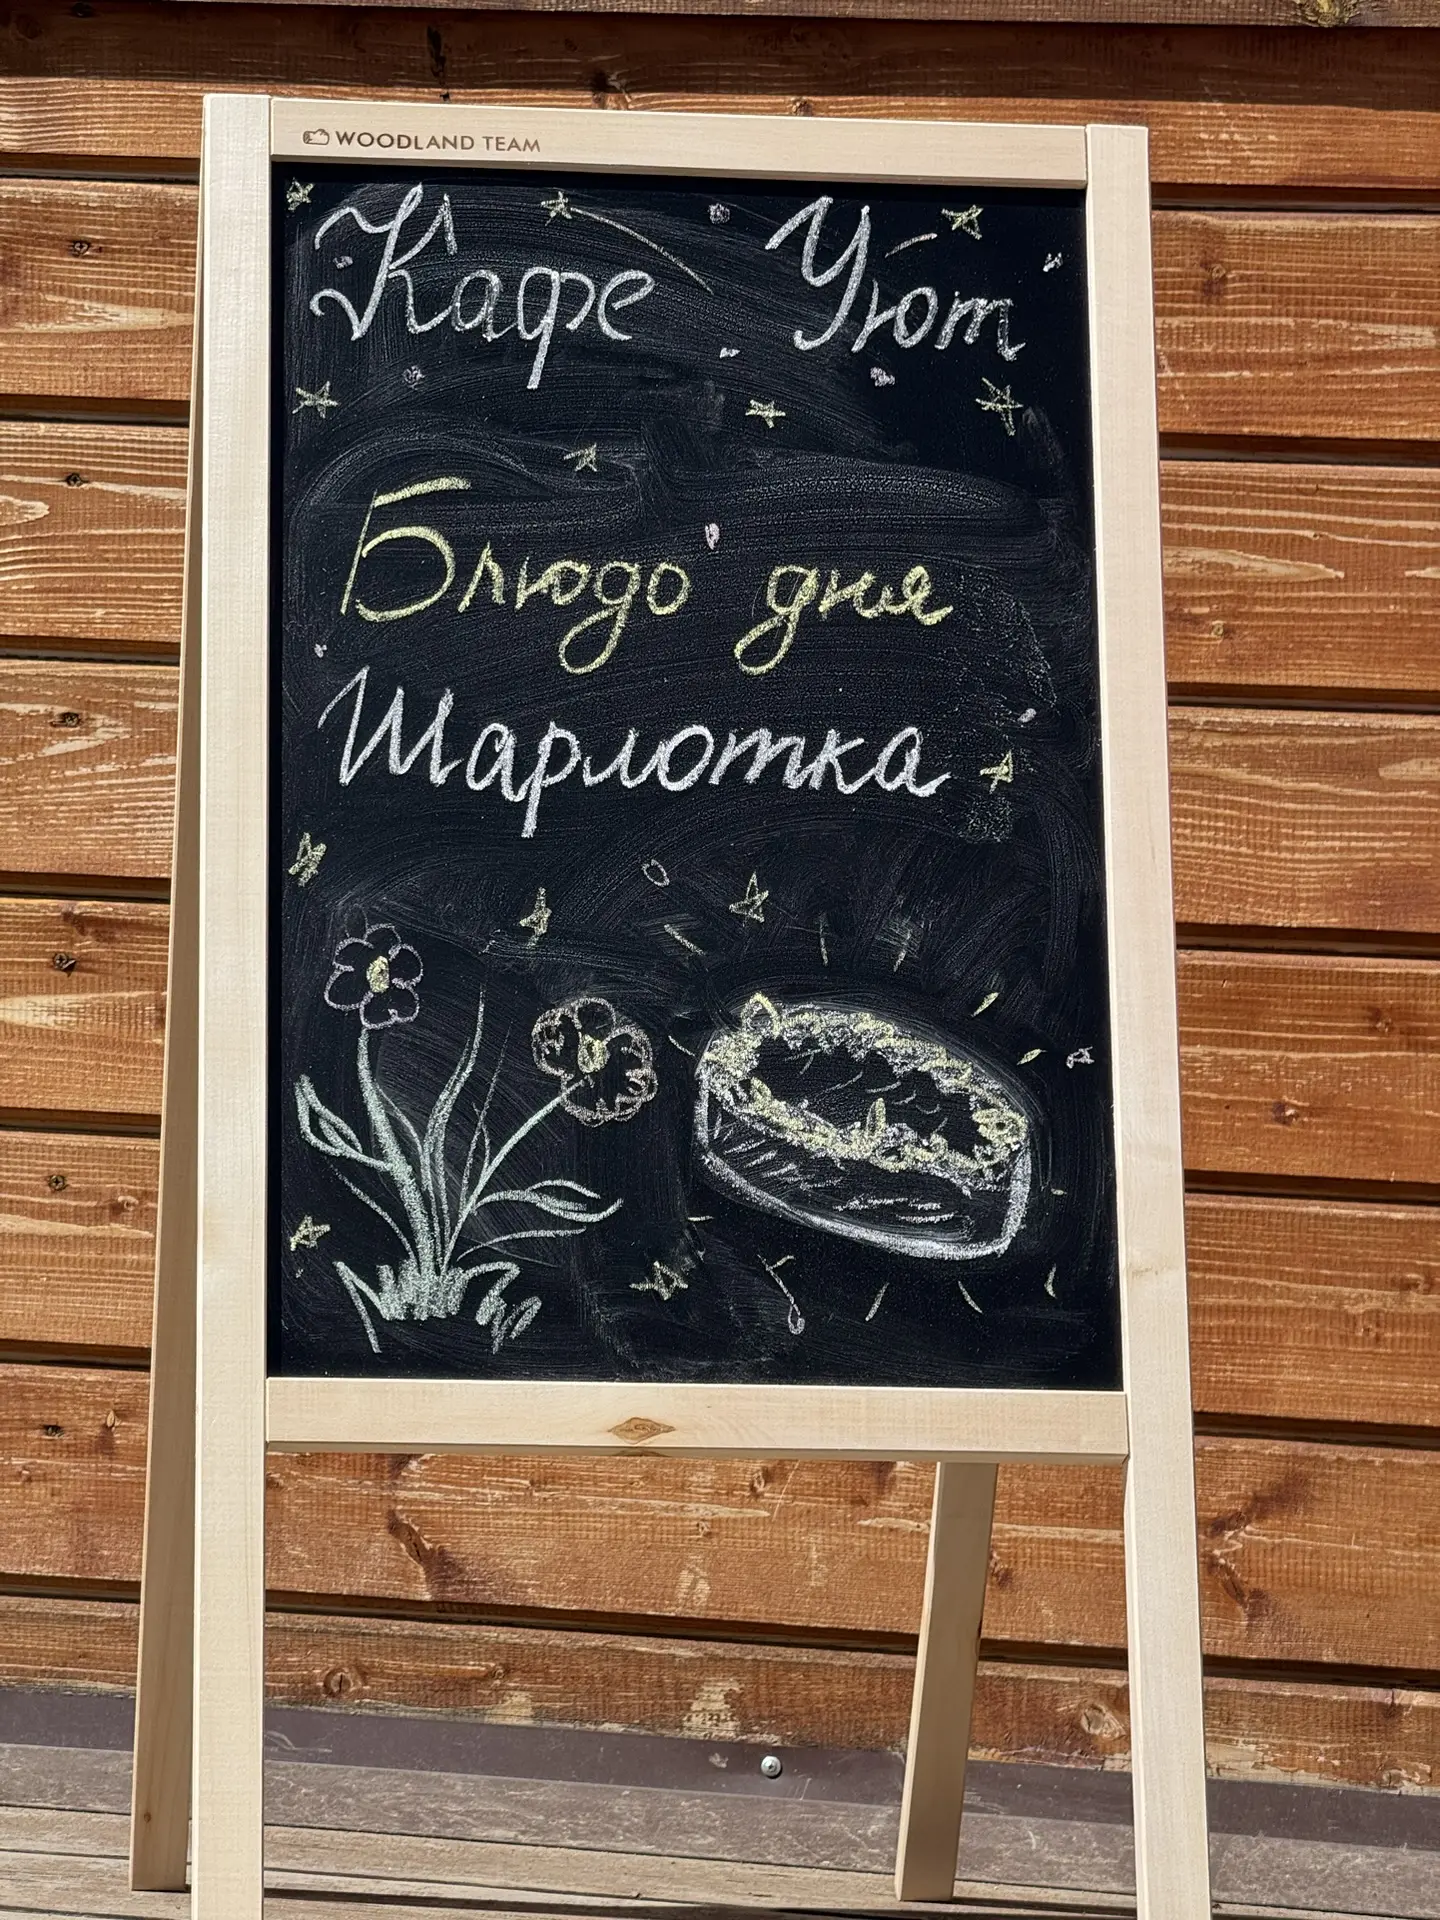 WOODLAND TEAM
Кафе Уют
Блюдо дня
Шарлотка